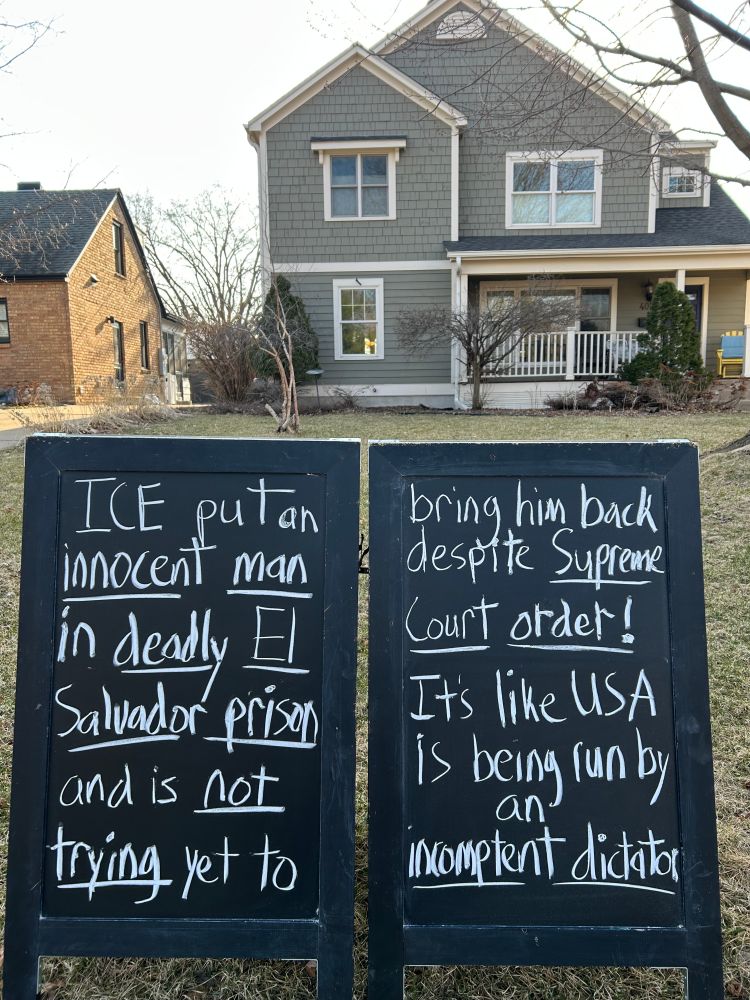 ICE put an
innocent man
in deadly El
Salvador prison
and is not
trying yet to
bring him back
despite Supreme
Court order!
It's like USA
is being run by
an
incomptent dictator